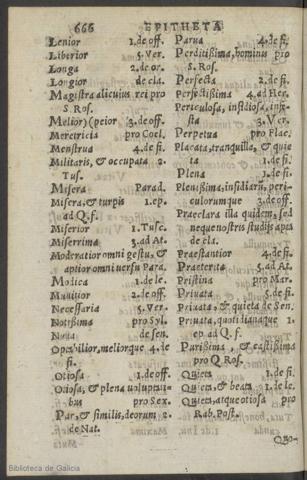 666 EPITHETA
Lenior 1. de off.
Liberior 5. Ver.
Longa 2. de or.
Longior de cla.
Magistra alicuius rei pro
S. Ros.
Melior) (peior 3. de off.
Meretricia pro Coel.
Menstrua 4. de fi.
Militaris, & occupata 2.
Tus.
Misera Parad.
Misera, & turpis 1. ep.
ad Q. f.
Miserior 1. Tusc.
Miserrima 3. ad At.
Moderatior omni gestu, &
aptior omni uersu Para.
Modica 1. de le.
Munitior 2. de off.
Necessaria 5. Ver.
Notissima pro Syl.
Noua de sen.
Optabilior, meliorque 4. de
fi.
Otiosa 1. de off.
Otiosa, & plena uoluptati-
bus pro Sex.
Par, & similis, deorum 2.
de Nat.
Parua 4. de fi.
Perditissima, hominis pro
S. Ros.
Perfecta 2. de fi.
Perfectissima 4. ad Her.
Periculosa, insidiosa, infe-
sta 3. Ver.
Perpetua pro Flac.
Placata, tranquilla, & quie
ta 1. de fi.
Plena 3. de fi.
Plenissima, insidiaru, peri-
culorumque 3. de off.
Praeclara illa quidem, sed
neque nostris studijs apta
de cla.
Praestantior 4. de fi.
Praeterita 5. ad At.
Pristina pro Mar.
Priuata 5. de fi.
Priuata, & quieta de Sen.
Priuata, quotidianaque 1.
ep. ad Q. f.
Purissima, & castissima
pro Q. Ros.
Quieta 1. de fi.
Quieta, & beata 1. de le.
Quieta, atque otiosa pro
Rab. Post.
Biblioteca de Galicia